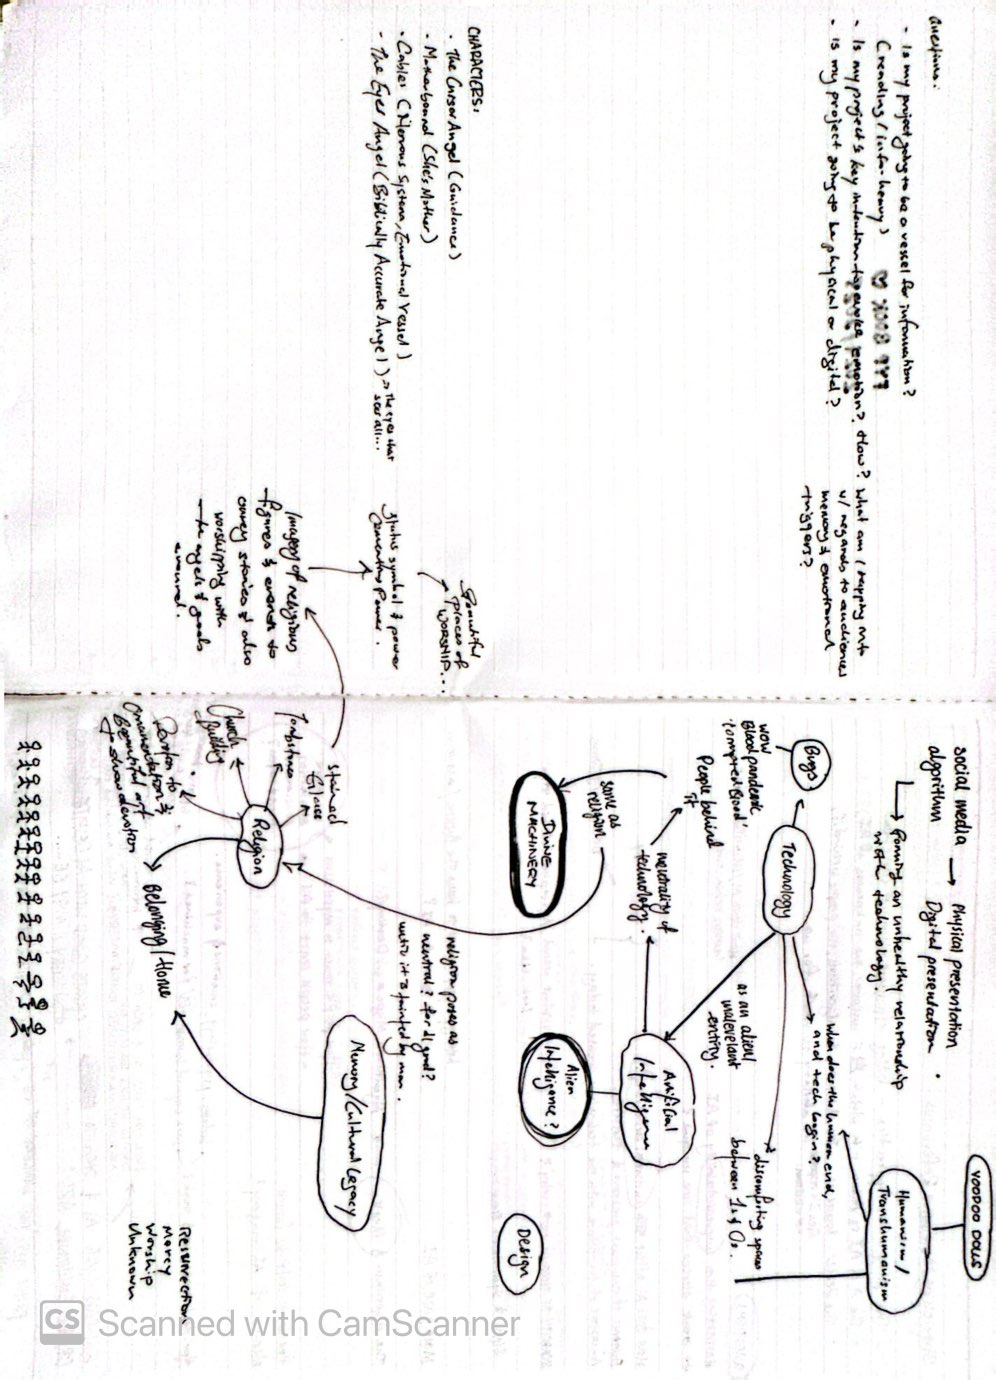 Questions:
• Is my project going to be a vessel for information?
(reading / info-heavy)
• Is my project's key intention to evoke emotion? How?
• Is my project going to be physical or digital?
What am I tapping into
w/ regards to audiences
memory & emotional
triggers?
CHARACTERS:
• The Cursor Angel (Guidance)
• Motherboard (She's Mother)
• Cables (Nervous System, Emotional Vessel)
- The Eyes Angel (Biblically Accurate Angel) → the eyes that
see all...
Beautiful
places of
WORSHIP...
Status symbol & power
Cementing Power.
Imagery of religious
figures & events to
convey stories & also
worshipping with
the angels & gods
around.
social media → Physical presentation
algorithm
Digital presentation.
forming an unhealthy relationship
with technology.
VOODOO DOLLS
Humanism /
Transhumanism
when does the human end,
and tech begin?
discomforting spaces
between 1s & 0s.
Bugs
wow
Blood pandemic
'corrupted blood'
Technology
as an alien/
malevolent
entity.
People behind
it
neutrality of
technology.
Artificial
Intelligence
Alien
Intelligence?
same as
religion
DIVINE
MACHINERY
Design
religion poses as
neutral? for all good?
until it's tainted by man.
Stained
Glass
Tombstones
Church
Building
Religion
Devotion to
ornamentation &
Beautiful art
to show devotion
Belonging / Home
Memory/Cultural Legacy
Resurrection
Mercy
Worship
Unknown
CS Scanned with CamScanner